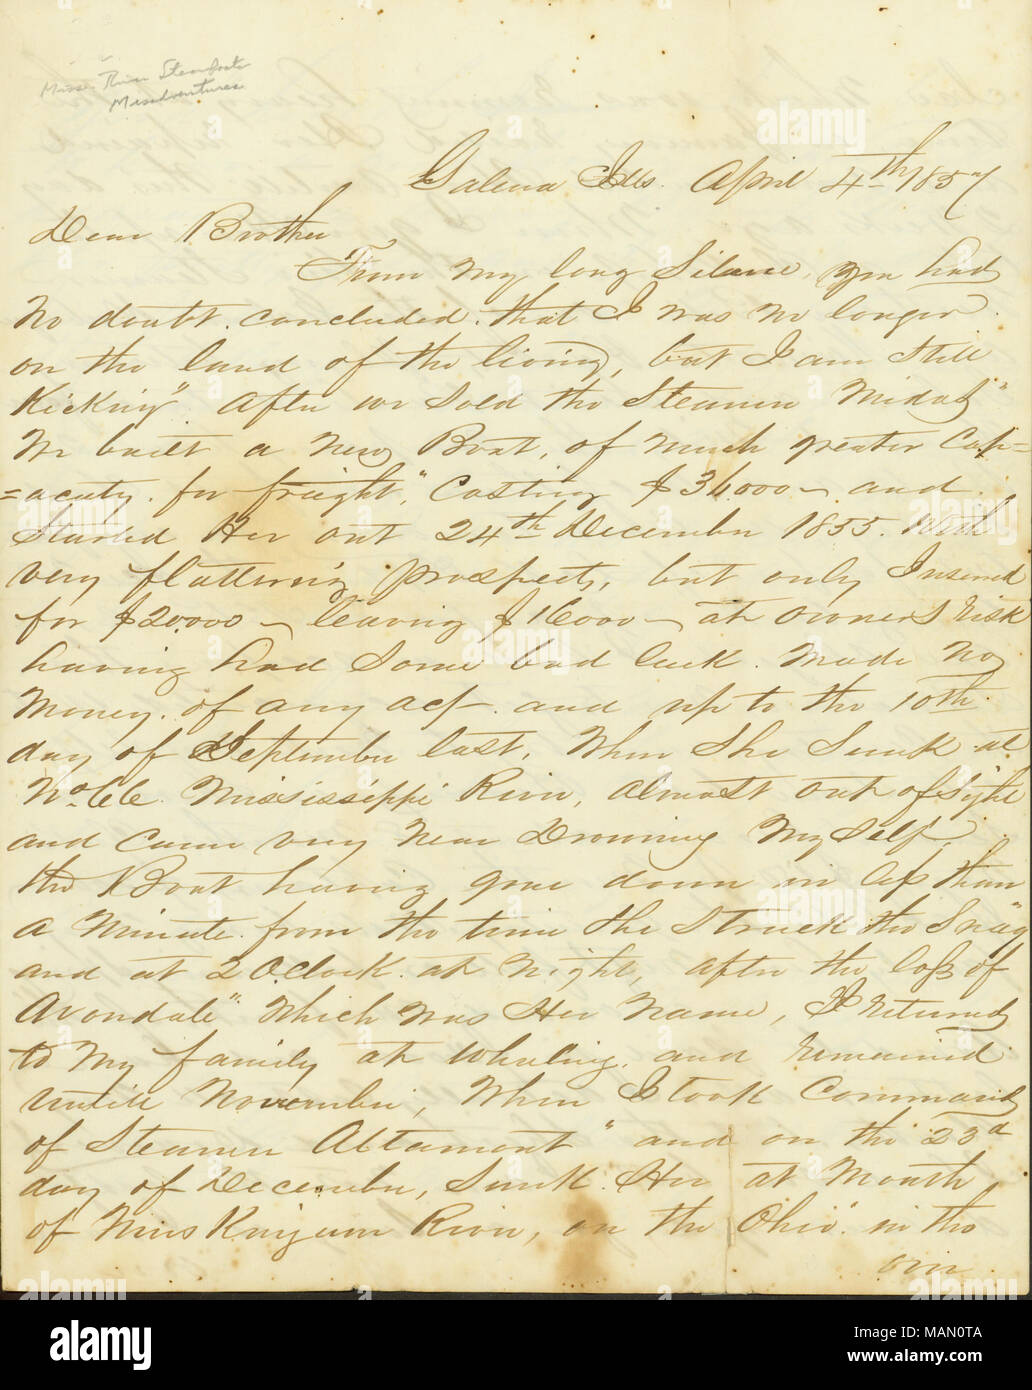 Miss. River Steamboat
Misadventures
Galena Ills. April 4th 1857
Dear Brother
From my long Silence, you had
no doubt. concluded. that I was no longer
on the land of the living, but I am Still
Kicking". After we Sold the Steamer Midas"
We built a New Boat, of much greater Cap=
=acaty. for frieght," Costing $36000 - and
Started Her out 24th December 1855. with
very flattering prospects, but only Insured
for $20.000 - leaving $16000 - at owners risk
having had Some bad luck. Made no
money. of any acf. and up to the 10th
day of September last, When She Sunk at
No. 66. Mississippi River, almost out of Sight
and Came very near Drowning My Self,
the Boat having gone down in less than
a Minute. from the time She Struck the Snag"
and at 2 OClock. at Night, after the loss of
Avondale" Which was Her Name, I returned
to My family at Wheling. and remained
untill November, When I took Command
of Steamer Altamont" and on the 23d
day of December, Sunk. Her at Mouth
of Muskingum River, on the Ohio" in the
alamy
MAN0TA
www.alamy.com